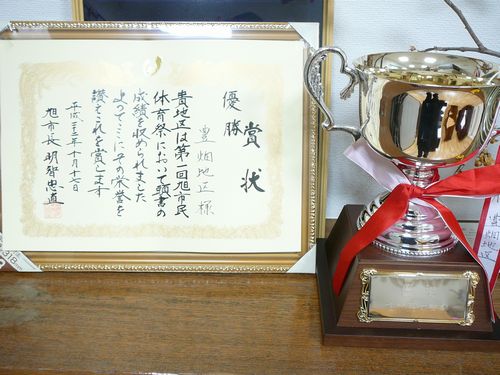 賞状
優勝
豊畑地区様
貴地区は第一回旭市民
体育祭において頭書の
成績を収められました
よってここにその栄誉を
讃えこれを賞します
平成二十三年十月十七日
旭市長 明智忠直